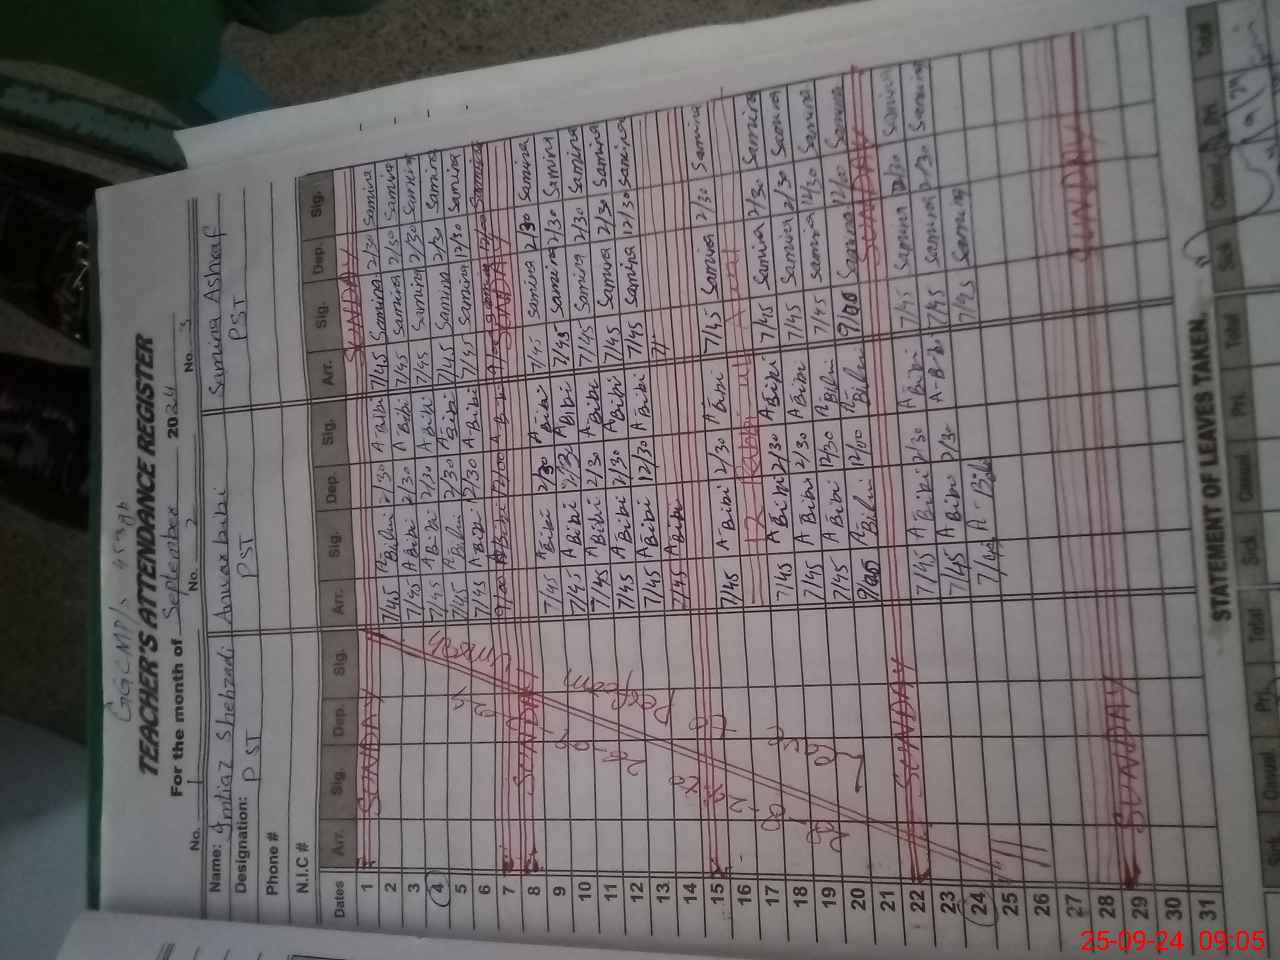 GGCMPS
TEACHER'S ATTENDANCE REGISTER
For the month of September 2024
No. 1 No. 2 No. 3
Name: Imtiaz Shehzadi Anwar bibi Samina Ashraf
Designation: PST PST PST
Phone #
N.I.C #
Dates Arr. Sig. Dep. Sig. Arr. Sig. Dep. Sig. Arr. Sig. Dep. Sig.
1 SUNDAY SUNDAY
2 7/45 A Bibi 2/30 A Bibi 7/45 Samina 2/30 Samina
3 7/45 A Bibi 2/30 A Bibi 7/45 Samina 2/30 Samina
4 7/45 A Bibi 2/30 A Bibi 7/45 Samina 2/30 Samina
5 7/45 A Bibi 2/30 A Bibi 7/45 Samina 2/30 Samina
6 7/45 A Bibi 12/30 A Bibi 7/45 Samina 12/30 Samina
7 9/00 A Bibi 12/00 A Bibi Samina
8 SUNDAY SUNDAY
9 7/45 A Bibi 2/30 A Bibi 7/45 Samina 2/30 Samina
10 7/45 A Bibi 2/30 A Bibi 7/45 Samina 2/30 Samina
11 7/45 A Bibi 2/30 A Bibi 7/45 Samina 2/30 Samina
12 7/45 A Bibi 2/30 A Bibi 7/45 Samina 2/30 Samina
13 7/45 A Bibi 12/30 A Bibi 7/45 Samina 12/30 Samina
14 7/45 A Bibi
15
16 7/45 A Bibi 2/30 A Bibi 7/45 Samina 2/30 Samina
17 12 Rabi ul Awal
18 7/45 A Bibi 2/30 A Bibi 7/45 Samina 2/30 Samina
19 7/45 A Bibi 2/30 A Bibi 7/45 Samina 2/30 Samina
20 7/45 A Bibi 12/30 A Bibi 7/45 Samina 12/30 Samina
21 9/00 A Bibi 12/00 A Bibi 9/00 Samina 12/00 Samina
22 SUNDAY SUNDAY
23 7/45 A Bibi 2/30 A Bibi 7/45 Samina 2/30 Samina
24 7/45 A Bibi 2/30 A-Bibi 7/45 Samina 2/30 Samina
25 7/45 A-Bibi 7/45 Samina
26
27
28
29 SUNDAY SUNDAY
30
31
to Perform Umrah
STATEMENT OF LEAVES TAKEN.
Sick Casual Pri. Total Sick Casual Pri. Total Sick Casual Pri. Total
25-09-24 09:05